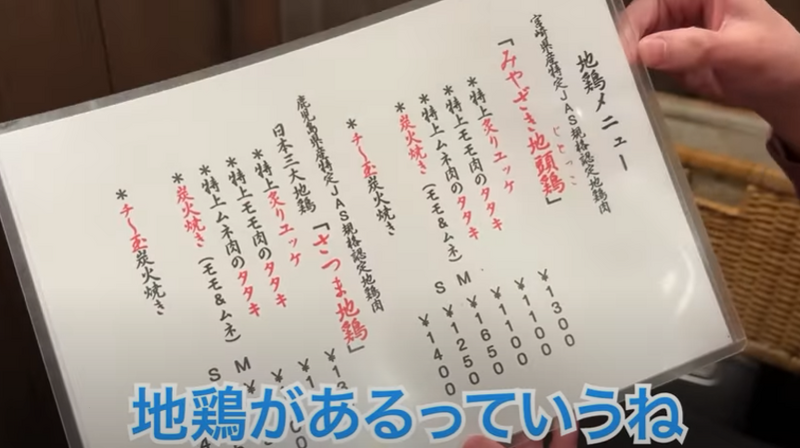 地鶏メニュー
宮崎県産特定JAS規格認定地鶏肉
「みやざき地頭鶏」
じとっこ
＊特上炙りユッケ ¥1300
＊特上モモ肉のタタキ ¥1100
＊特上ムネ肉のタタキ ¥1100
＊炭火焼き(モモ&ムネ) M ¥1650
S ¥1250
＊チーズ炭火焼き ¥1400
鹿児島県産特定JAS規格認定地鶏肉
日本三大地鶏「さつま地鶏」
＊特上炙りユッケ
＊特上モモ肉のタタキ
＊特上ムネ肉のタタキ
＊炭火焼き(モモ&ムネ) M
S
＊炭火焼き
地鶏があるっていうね